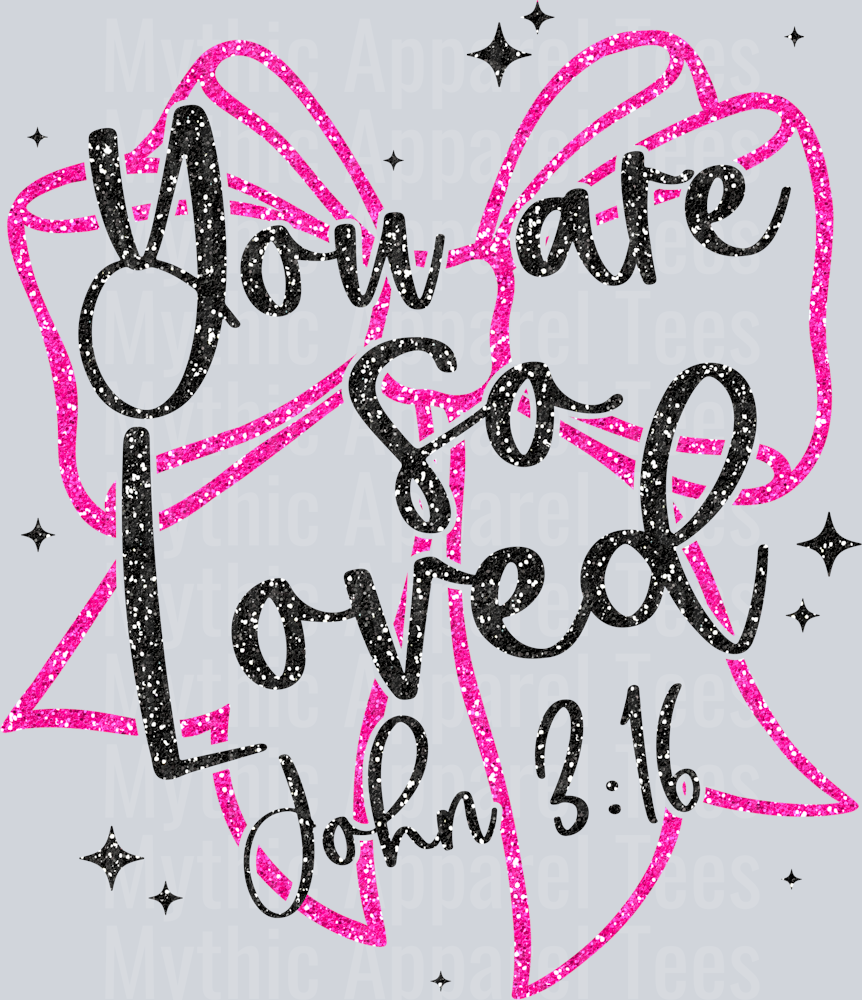 Mythic Apparel Tees
Mythic Apparel Tees
Mythic Apparel Tees
Mythic Apparel Tees
Mythic Apparel Tees
Mythic Apparel Tees
Mythic Apparel Tees
Mythic Apparel Tees
Mythic Apparel Tees
Mythic Apparel Tees
Mythic Apparel Tees
You are
so
Loved
John 3:16